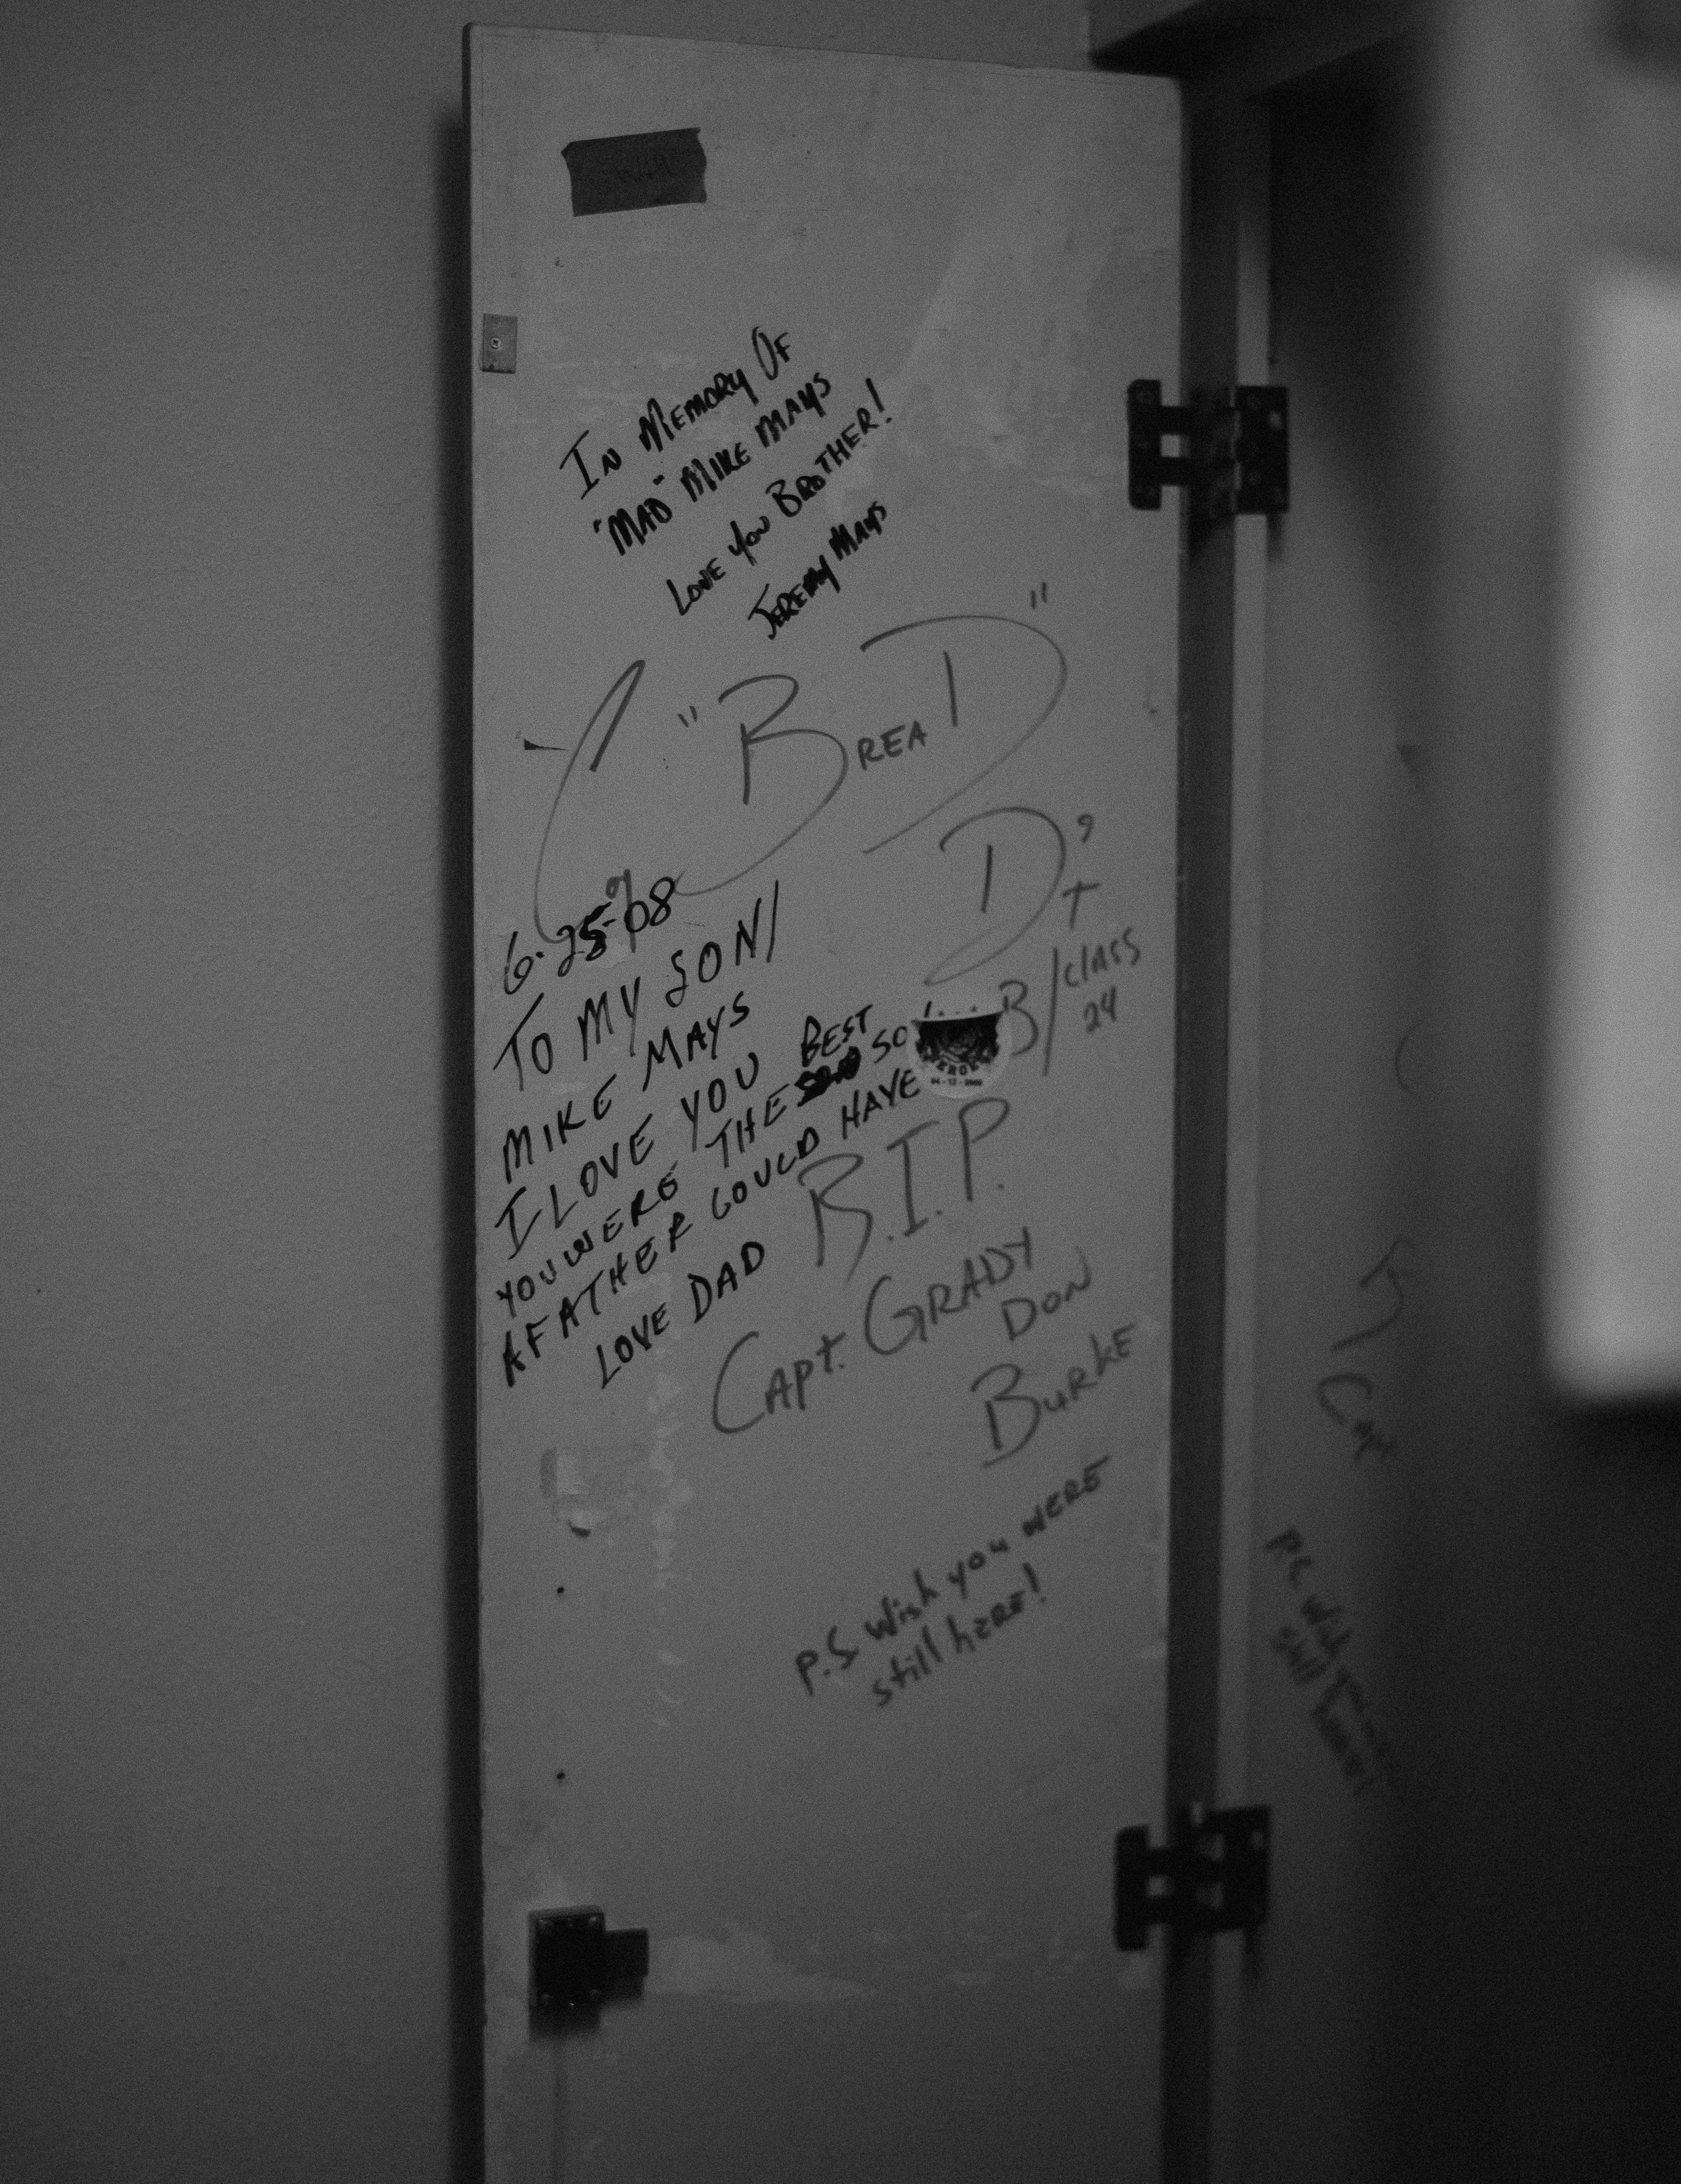 IN MEMORY OF
"MAD" MIKE MAYS
LOVE YOU BROTHER!
JEREMY MAYS
"BREAD"
D'
T
B/CLASS
24
6-25-08
TO MY SON/
MIKE MAYS
I LOVE YOU
YOU WERE THE BEST SO
A FATHER COULD HAVE
LOVE DAD
R.I.P.
CAPt. GRADY
DON
BURKE
P.S Wish you WERE
still hERE!
Capt